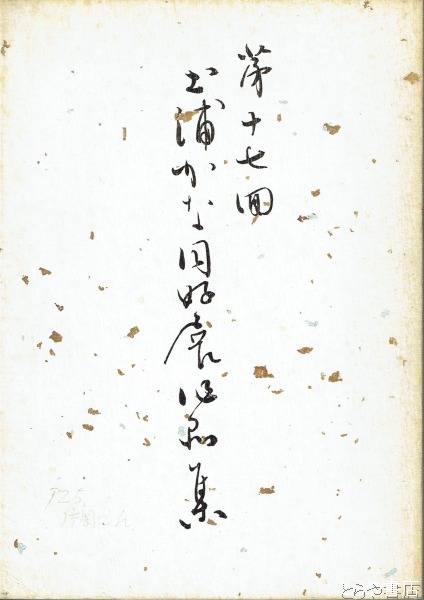 第十七回
土浦かな同好展作品集
P25
とらや書店